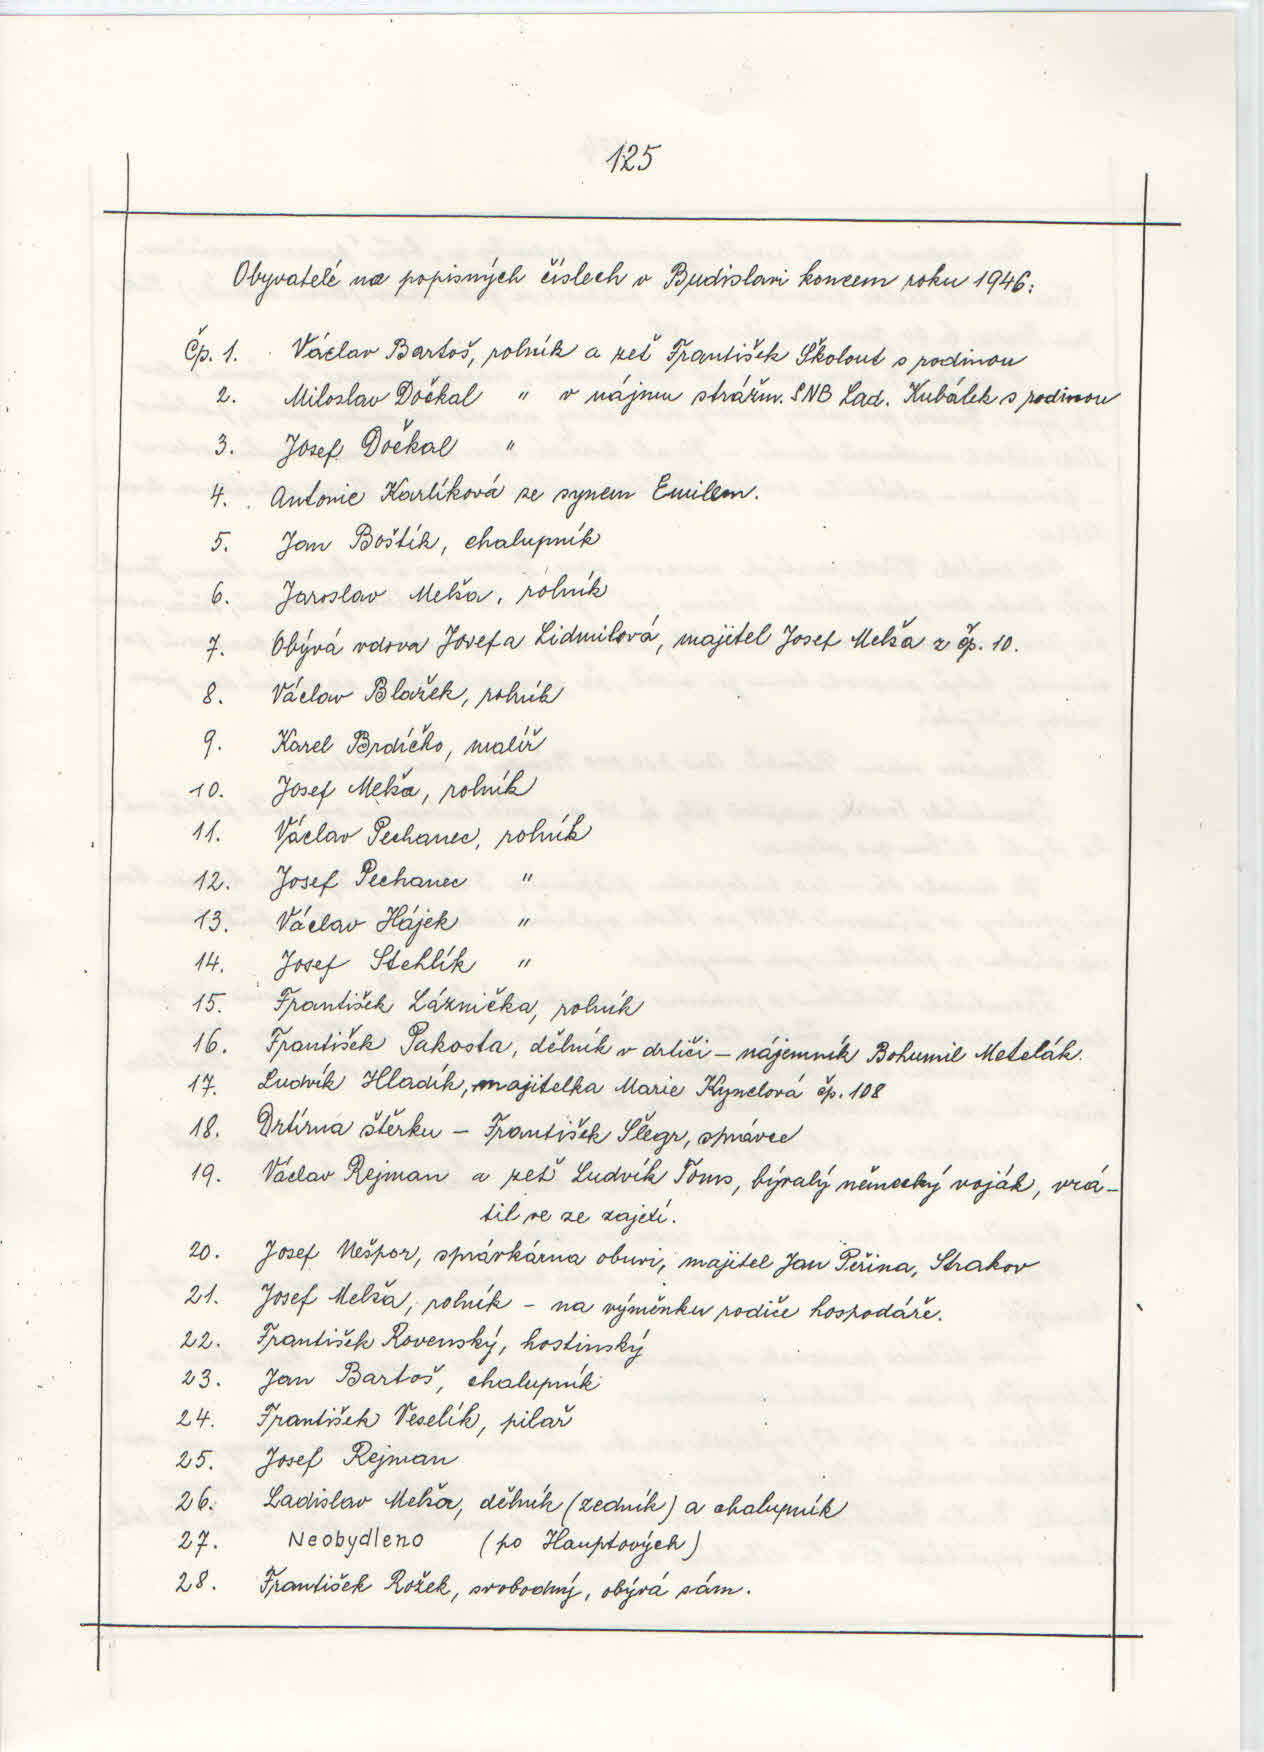 125
Obyvatelé na popisných číslech v Budislavi koncem roku 1946:
Čp. 1. Václav Bartoš, rolník a zeť František Školout s rodinou
2. Miloslav Dočkal " v nájmu strážm. SNB Lad. Kubálek s rodinou
3. Josef Dočkal "
4. Antonie Karlíková se synem Emilem.
5. Jan Boštík, chalupník
6. Jaroslav Melša, rolník
7. Obývá vdova Josefa Lidmilová, majitel Josef Melša z čp. 10.
8. Václav Blažek, rolník
9. Karel Brdíčko, malíř
10. Josef Melša, rolník
11. Václav Pechanec, rolník
12. Josef Pechanec "
13. Václav Hájek "
14. Josef Stehlík "
15. František Láznička, rolník
16. František Pakosta, dělník v drtiči - nájemník Bohumil Metelák.
17. Ludvík Hladík, majitelka Marie Kynclová čp. 108
18. Drtírna štěrku - František Šlegr, správce
19. Václav Rejman a zeť Ludvík Toms, bývalý německý voják, vrá-
til se ze zajetí.
20. Josef Nešpor, správkárna obuvi, majitel Jan Peřina, Strakov
21. Josef Melša, rolník - na výměnku rodiče hospodáře.
22. František Rovenský, hostinský
23. Jan Bartoš, chalupník
24. František Veselík, pilař
25. Josef Rejman
26. Ladislav Melša, dělník (zedník) a chalupník
27. Neobydleno (po Hauptových)
28. František Rožek, svobodný, obývá sám.